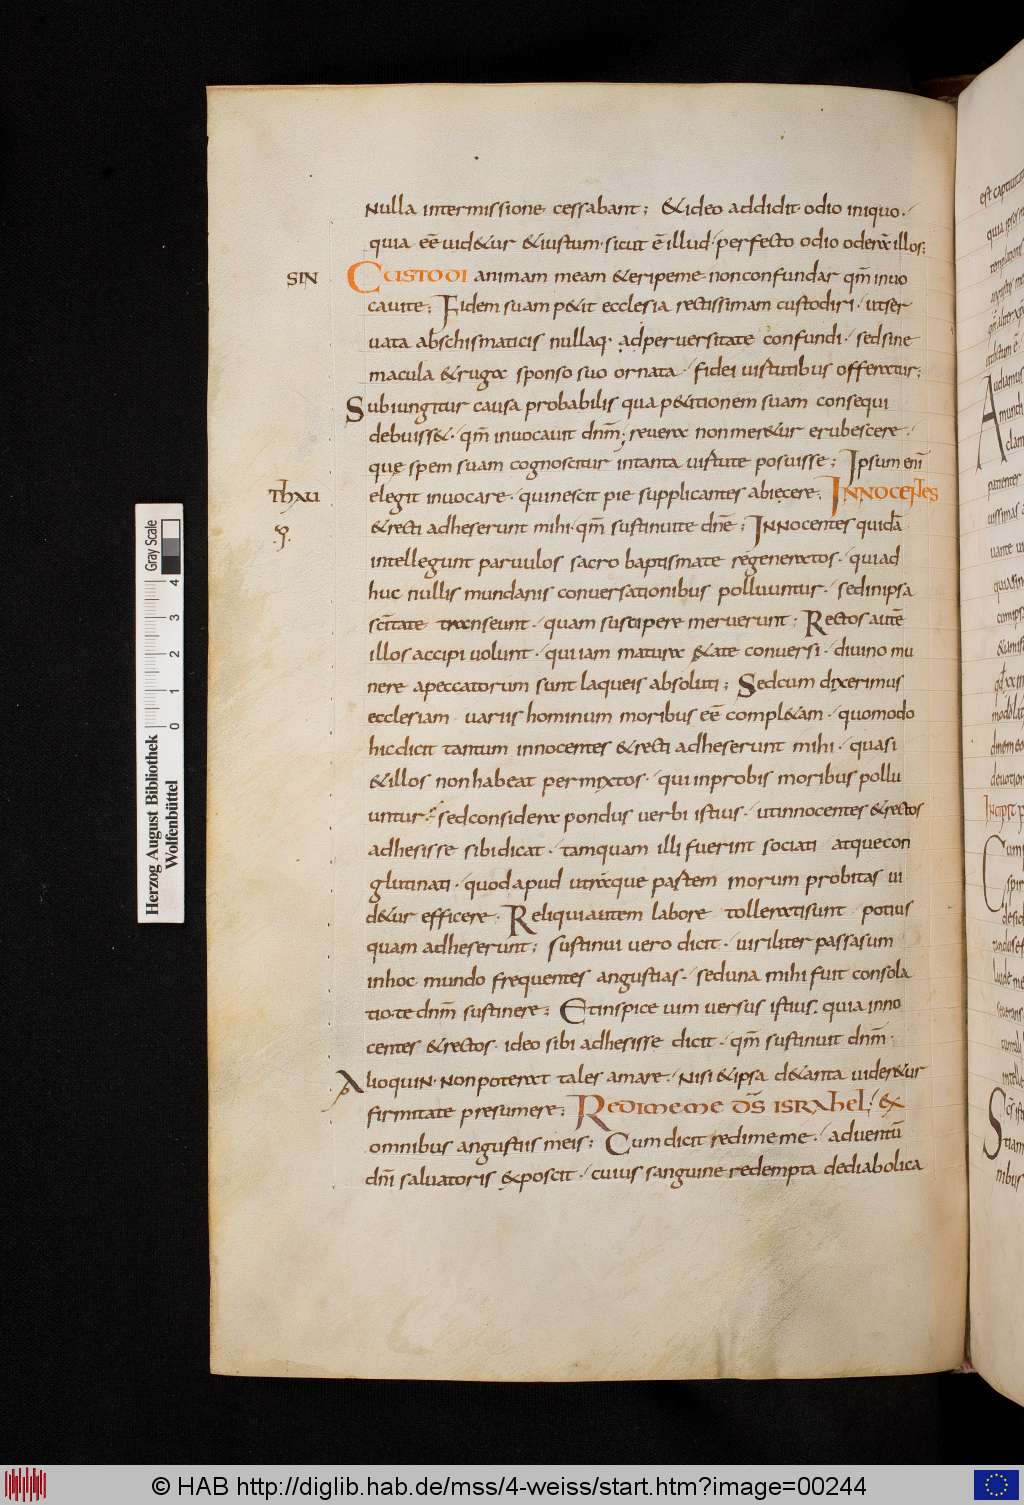 Nulla intermissione cessabant; & ideo addidit odio iniquo.
quia eē uid&ur & iustum. sicut ē illud. perfecto odio oderā illos;
SIN
CUSTODI animam meam & eripe me. non confundar qm̄ inuo
cauite; Fidem suam p&it ecclesia rectissimam custodiri. ut ser
uata ab schismaticis nullaq. ad peruersitate confundi. sed sine
macula & ruga sponso suo ornata. fidei uirtutibus offeratur;
Subiungitur causa probabilis qua p&itionem suam consequi
debuiss&. qm̄ inuocauit dnm̄; reuera non mer&ur erubescere.
quę spem suam cognoscitur in tanta uirtute posuisse; Ipsum enī
THAU
elegit inuocare. qui nescit pie supplicantes abięcere; INNOCENTES
& recti adheserunt mihi. qm̄ sustinui te dnē; INNocentes quidā
intellegunt paruulos sacro baptismate regeneratos. qui ad
huc nullis mundanis conuersationibus polluuntur. sed in ipsa
scītate transeunt. quam suscipere meruerunt; Rectos autē
illos accipi uolunt. qui iam matura &ate conuersi. diuino mu
nere a peccatorum sunt laqueis absoluti; Sed cum dixerimus
ecclesiam uariis hominum moribus eē compl&am. quomodo
hic dicit tantum innocentes & recti adheserunt mihi. quasi
& illos non habeat permixtos. qui inprobis moribus pollu
untur. sed considera pondus uerbi istius. ut innocentes & rectos
adhesisse sibi dicat. tamquam illi fuerint sociati atque con
glutinati. quod apud utrāque partem morum probitas ui
d&ur efficere. Reliqui autem labore tollerati sunt potius
quam adheserunt; sustinui uero dicit. uiriliter passa sum
in hoc mundo frequentes angustias. sed una mihi fuit consola
tio. te dnm̄ sustinere; Et inspice uim uersus istius. quia inno
centes & rectos. ideo sibi adhesisse dicit. qm̄ sustinuit dnm̄.
Alioquin. non poterat tales amare. Nisi & ipsa d& tanta uider&ur
firmitate presumere; REDIME ME DS̄ ISRAHEL. EX
omnibus angustiis meis; Cum dicit redime me. aduentū
dnī saluatoris exposcit. cuius sanguine redempta de diabolica
Herzog August Bibliothek
Wolfenbüttel
Gray Scale
0 1 2 3 4
© HAB http://diglib.hab.de/mss/4-weiss/start.htm?image=00244